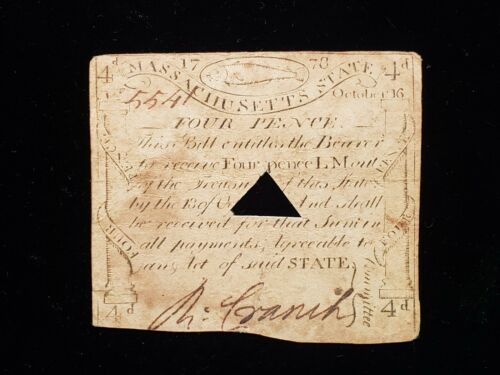 4d 17 78 4d
MASSACHUSETTS STATE
5541 October 16
FOUR PENCE
This Bill entitles the Bearer
to receive Four pence L. Mon
by the Treasurer of this State
by the 18 of And shall
be received for that Sum in
all payments, Agreeable to
an Act of said STATE.
Committee
R: Cranch
FOUR PENCE
FOUR
4d 4d